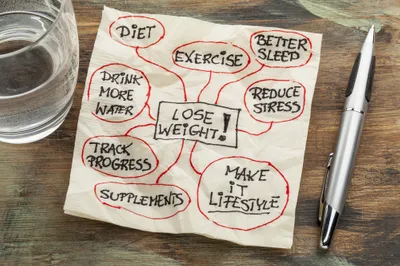 DIET
EXERCISE
BETTER
SLEEP
DRINK
MORE
WATER
REDUCE
STRESS
LOSE
WEIGHT!
TRACK
PROGRESS
MAKE
IT
LIFESTYLE
SUPPLEMENTS